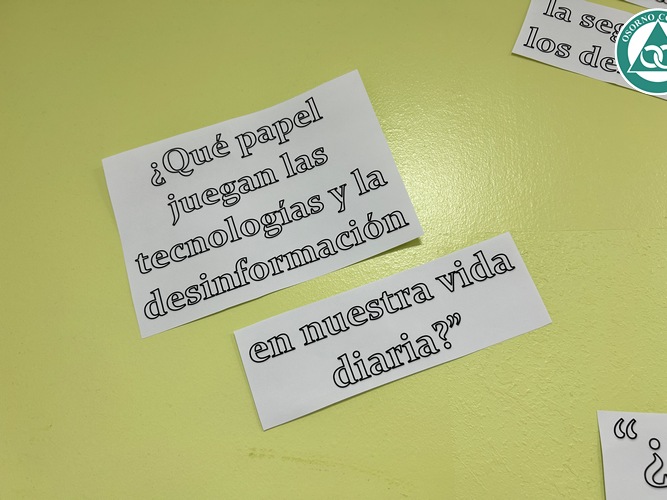 la
los
OSORNO
¿Qué papel
juegan las
tecnologías y la
desinformación
en nuestra vida
diaria?”
“¿